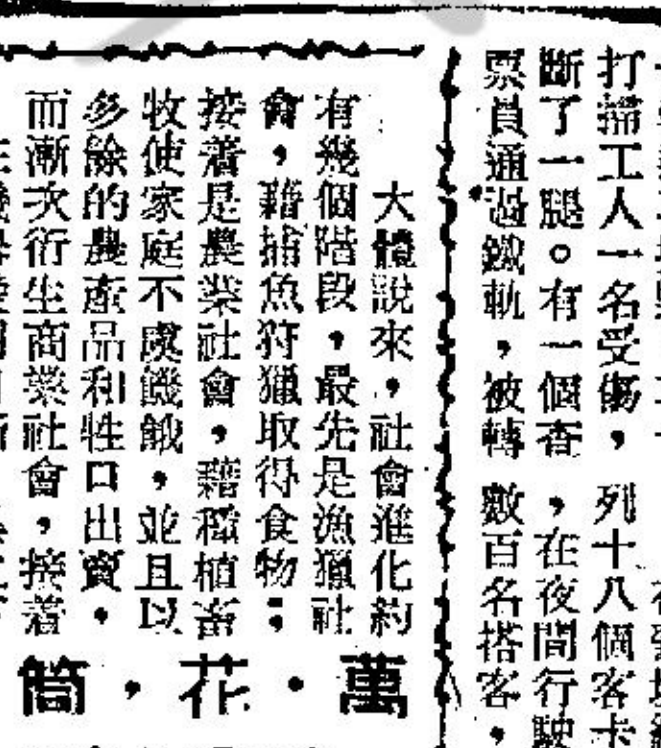 打掃工人一名受傷，
斷了一腿。有一個查
票員通過鐵軌，被轉
列十八個客卡
，在夜間行駛
數百名搭客，
大體說來，社會進化約
有幾個階段，最先是漁獵社
會，藉捕魚狩獵取得食物；
接着是農業社會，藉種植畜
牧使家庭不虞饑餓，並且以
多餘的農產品和牲口出賣，
而漸次衍生商業社會，接着
萬・花・筒